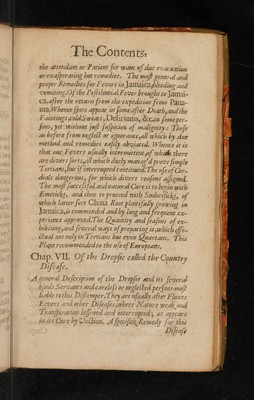 The Contents.
the attendant or Patient for want of due evacuation
or exasperating hot remedies. The most general and
proper Remedies for Fevers in Jamaica, bleeding and
vomiting. Of the Pestilential Fever brought to Jamai-
ca, after the return from the expedition from Pana-
ma. Whence spots appear in some after Death, and the
Faintings, cold Sweats, Deliriums, &c. in some per-
sons, yet without just suspicion of malignity: Those
as before from neglect or ignorance, all which by due
method and remedies easily obviated. Whence it is
that our Fevers usually intermittent, of which there
are divers sorts, all which duely manag'd prove simple
Tertians, but if interrupted continued. The use of Cor-
dials dangerous, for which divers reasons assigned.
The most successful and natural Cure is to begin with
Emeticks, and then to proceed with Sudorificks, of
which latter sort China Root plentifully growing in
Jamaica, commended and by long and frequent ex-
perience approved. The Quantity and seasons of ex-
hibiting, and several ways of preparing it, which effe-
ctual not only in Tertians but even Quartans. This
Plant recommended to the use of Europeans.
Chap. VII. Of the Dropsie called the Country
Disease.
A general Description of the Dropsie and its several
kinds. Servants and careless or neglected persons most
liable to this Distemper. They are usually after Fluxes
Fevers and other Diseases, where Nature weak, and
Transpiration lessened and interrupted, as appears
in its Cure by Unction. A specifick Remedy for this
Disease